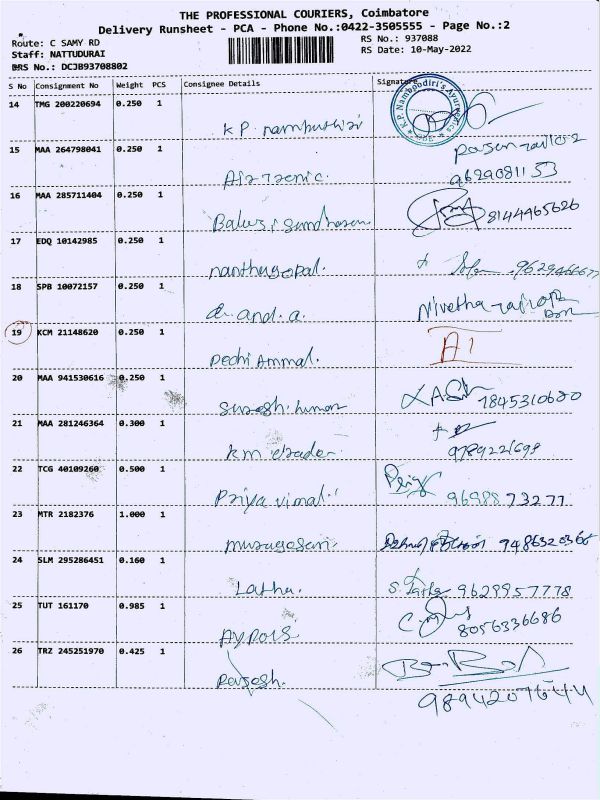 THE PROFESSIONAL COURIERS, Coimbatore
Delivery Runsheet - PCA - Phone No.:0422-3505555 - Page No.:2
Route: C SAMY RD
RS No.: 937088
Staff: NATTUDURAI
RS Date: 10-May-2022
DRS No.: DCJB93708802
S No Consignment No Weight PCS Consignee Details Signature
14 TMG 200220694 0.250 1
K.P. Namboodiri's Ayurvedics
K P nambuthiri
15 MAA 264798041 0.250 1
9629081153
16 MAA 285711404 0.250 1
8144465626
17 EDQ 10142985 0.250 1
nanthugopal.
18 SPB 10072157 0.250 1
Nivetha
dr. and. a.
19 KCM 21148620 0.250 1
A1
Pechi Ammal.
20 MAA 941530616 0.250 1
7845310680
21 MAA 281246364 0.300 1
9789221698
22 TCG 40109260 0.500 1
96988 73277
Priya vimal
23 MTR 2182376 1.000 1
murugesan. 9486320365
24 SLM 295286451 0.160 1
Latha. 9629957778
25 TUT 161170 0.985 1
8056336686
26 TRZ 245251970 0.425 1
Rajesh.
9894207644